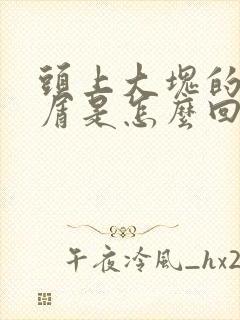 頭上大塊的
屑是怎麼回
午夜冷風_hx2